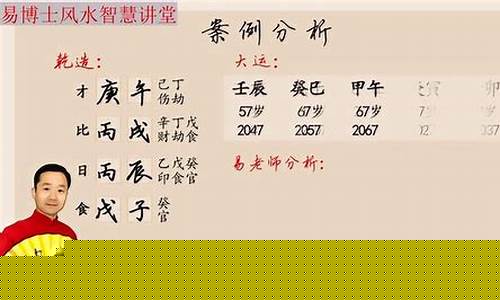 易博士风水智慧讲堂
案例分析
乾造：
才 庚 午 己丁
伤劫
比 丙 戌 辛丁戊
财劫食
日 丙 辰 乙戊癸
印食官
食 戊 子 癸
官
大运：
壬辰 癸巳 甲午 寅 卯
57岁 67岁 67岁
2047 2057 2067
易老师分析：